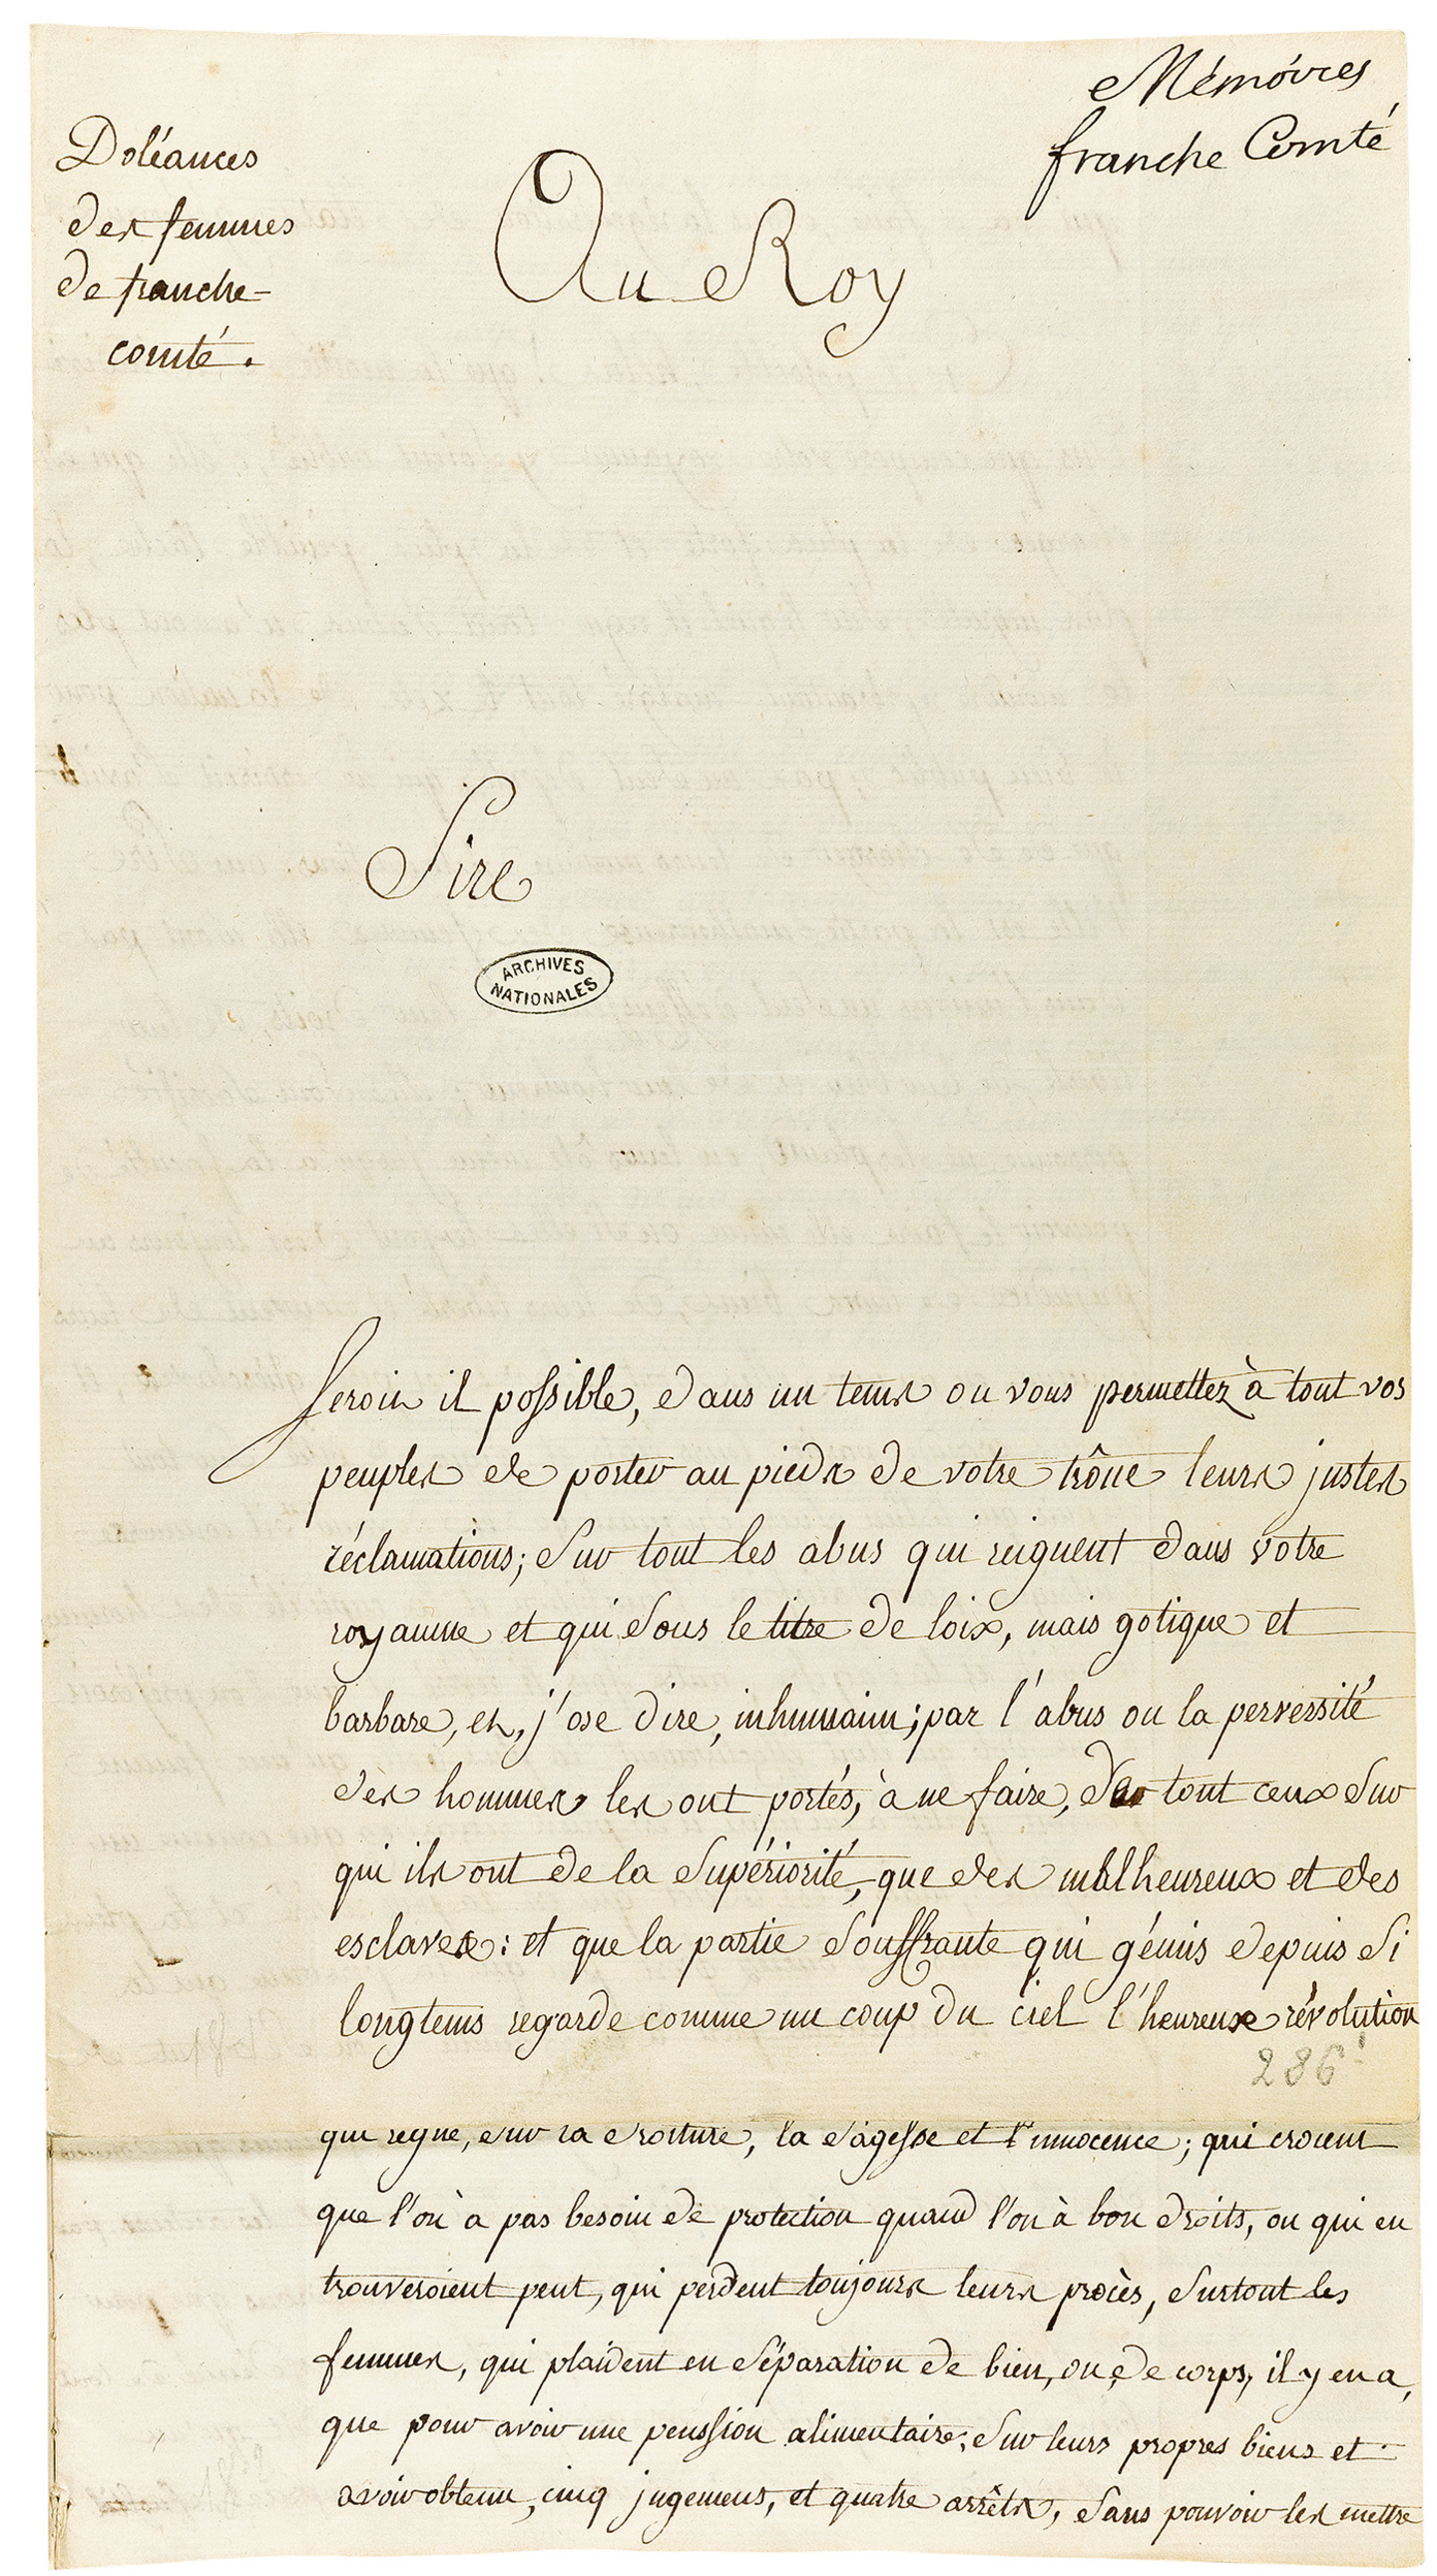 Mémoires
franche Comté
Doléances
des femmes
de franche-
comté.
Au Roy
Sire
ARCHIVES
NATIONALES
Seroit il possible, dans un tems ou vous permettez à tout vos
peuples de porter au pieds de votre trône leurs justes
réclamations; Sur tout les abus qui reignent dans votre
royaume et qui Sous le titre de loix, mais gotique et
barbare, et, j'ose dire, inhumain; par l'abus ou la perversité
des hommes les ont portés, à ne faire, de tout ceux Sur
qui ils ont de la Supériorité, que des malheureux et des
esclaves: et que la partie Souffrante qui gémis depuis Si
longtems regarde comme un coup du ciel l'heureuse révolution
286
qui regne, sur la droiture, la Sagesse et l'innocence; qui croient
que l'on à pas besoin de protection quand l'on à bon droits, ou qui en
trouveroient peut, qui perdent toujours leurs procès, Surtout les
femmes, qui plaident en Séparation de bien, ou de corps, il y en a,
que pour avoir une penssion alimentaire; Sur leurs propres biens et
avoir obtenu, cinq jugemens, et quatre arrêts, Sans pouvoir les mettre